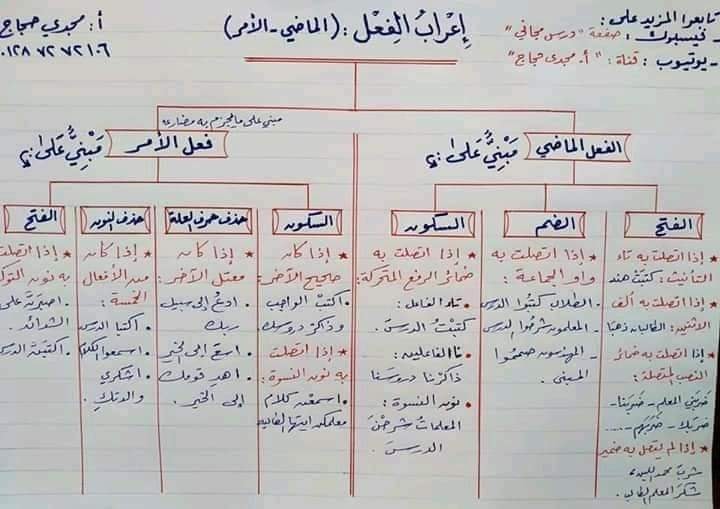 تابعوا المزيد على:
- فيسبوك: صفحة "درس مجاني"
- يوتيوب: قناة: "أ. مجدي حجاج"
إعْرَابُ الفِعْل: (الماضي-الأمر)
أ: مجدي حجاج
٠١٢٨ ٧٢ ٧٢١٠٦
الفعل الماضي
مَبْنِيٌّ عَلى:
الفتح
* إذا اتصلت به تاء
التأنيث: كتبَتْ هند
* إذا اتصلت به ألف
الاثنين: الطالبان ذهبَا
* إذا اتصلت به ضمائر
النصب المتصلة:
ضَرَبَني المعلم - ضَرَبَنا -
ضربَك - ضَرَبَهم - ....
* إذا لم يتصل به ضمير
شكرَ المعلم الطالب.
الضم
* إذا اتصلت به
واو الجماعة:
- الطلاب كتبُوا الدرس
- المعلمون شرحُوا الدرس
- المهندسون صممُوا
المبنى.
السكون
* إذا اتصلت به
ضمائر الرفع المتحركة:
• تاء الفاعل:
كتبْتُ الدرسَ.
• نا الفاعلين:
ذاكرْنا دروسَنا
• نون النسوة:
المعلمات شرحْنَ
الدرسَ.
مبني على ما يجزم به مضارعه
فعل الأمر
مَبْنِيٌّ عَلى:
السكون
* إذا كان
صحيح الآخر:
• اكتبْ الواجب
وذاكرْ دروسك
* إذا اتصلت
به نون النسوة:
• اسمعْن كلام
معلمكن أيتها الطالبات
حذف حرف العلة
* إذا كان
معتل الآخر:
• ادعُ إلى سبيل
ربك
• اسعَ إلى الخير
• اهدِ قومك
إلى الخير.
حذف النون
* إذا كان
من الأفعال
الخمسة:
• اكتبا الدرس
• اسمعوا الكلام
• اشكري
والدتكِ.
الفتح
* إذا اتصلت
به نون التوكيد
• اصبرَنَّ على
الشدائد.
• اكتبَنَّ الدرس